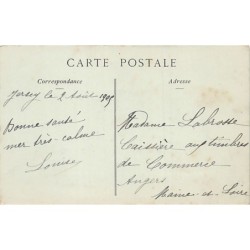 CARTE POSTALE
Correspondance
Adresse
Jersey le 2 Août 1905
Bonne santé
mer très-calme
Louise
Madame Labrosse
Caissière aux timbres
de Commerie
Angers
Maine-et-Loire